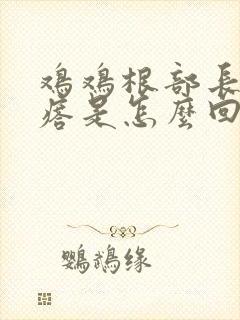 鸡鸡根部長
痞是怎麼回
鸚鵡缘